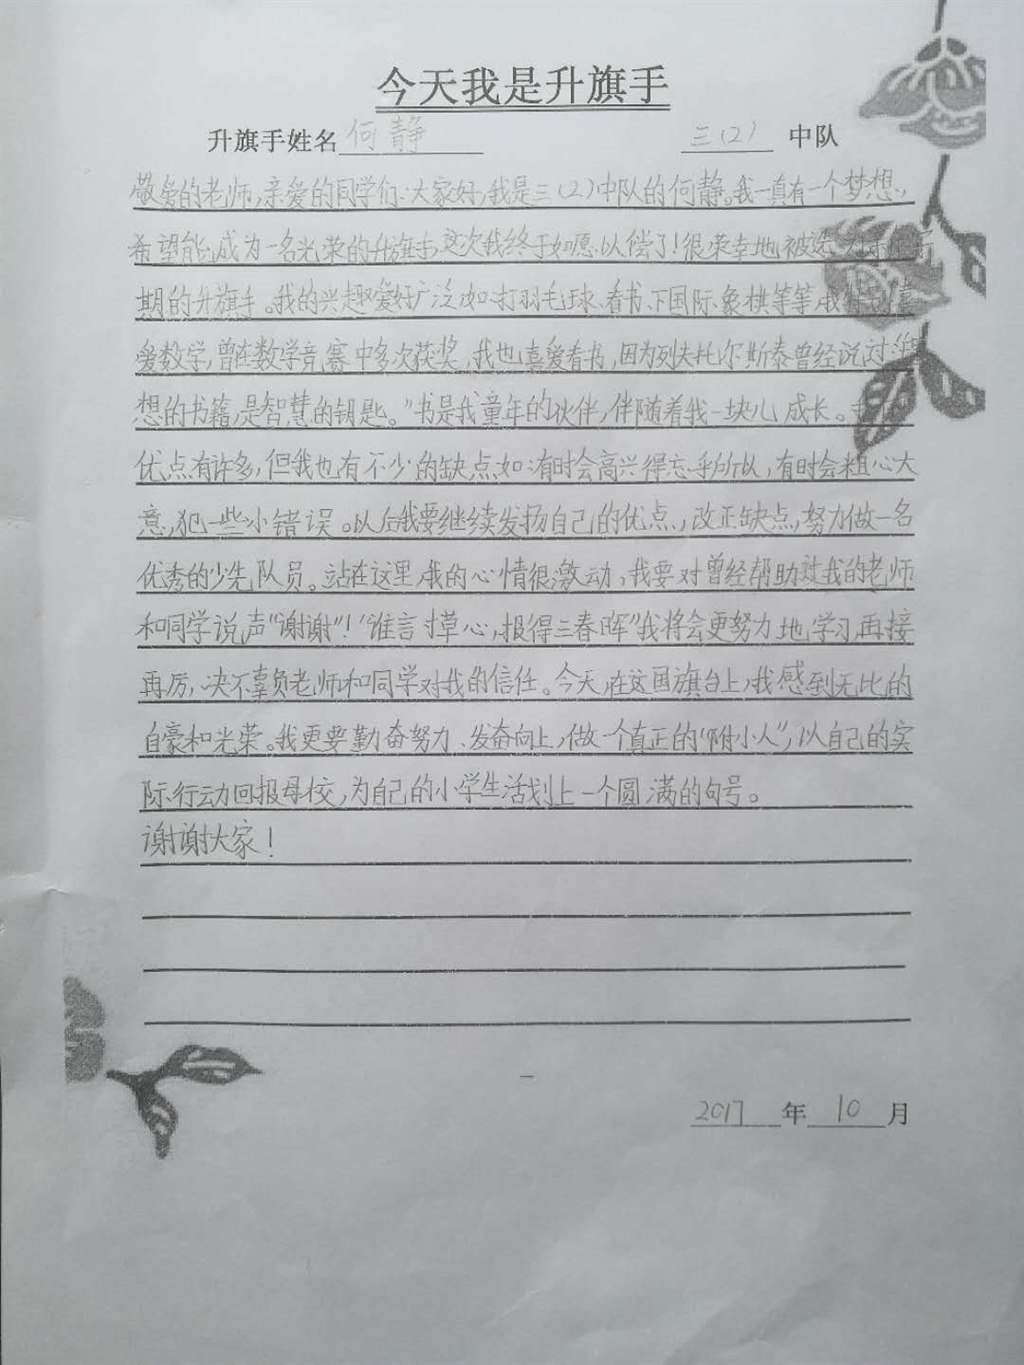 今天我是升旗手
升旗手姓名 何静 三(2) 中队
敬爱的老师,亲爱的同学们:大家好,我是三(2)中队的何静。我一真有一个梦想,
希望能成为一名光荣的升旗手,这次我终于如愿以偿了!很荣幸地被选为
期的升旗手。我的兴趣爱好广泛如:打羽毛球、看书、下国际象棋等等,
爱数学,曾在数学竞赛中多次获奖,我也喜爱看书,因为列夫托尔斯泰曾经说过
想的书籍,是智慧的钥匙。”书是我童年的伙伴,伴随着我一块儿成长。
优点有许多,但我也有不少的缺点如:有时会高兴得忘乎所以,有时会粗心大
意,犯一些小错误。以后我要继续发扬自己的优点,改正缺点,努力做一名
优秀的少先队员。站在这里,我的心情很激动,我要对曾经帮助过我的老师
和同学说声“谢谢”!“谁言寸草心,报得三春晖”我将会更努力地学习,再接
再厉,决不辜负老师和同学对我的信任。今天,在这国旗台上,我感到无比的
自豪和光荣。我更要勤奋努力、发奋向上,做一个真正的“附小人”,以自己的实
际行动回报母校,为自己的小学生活划上一个圆满的句号。
谢谢大家!
2017 年 10 月